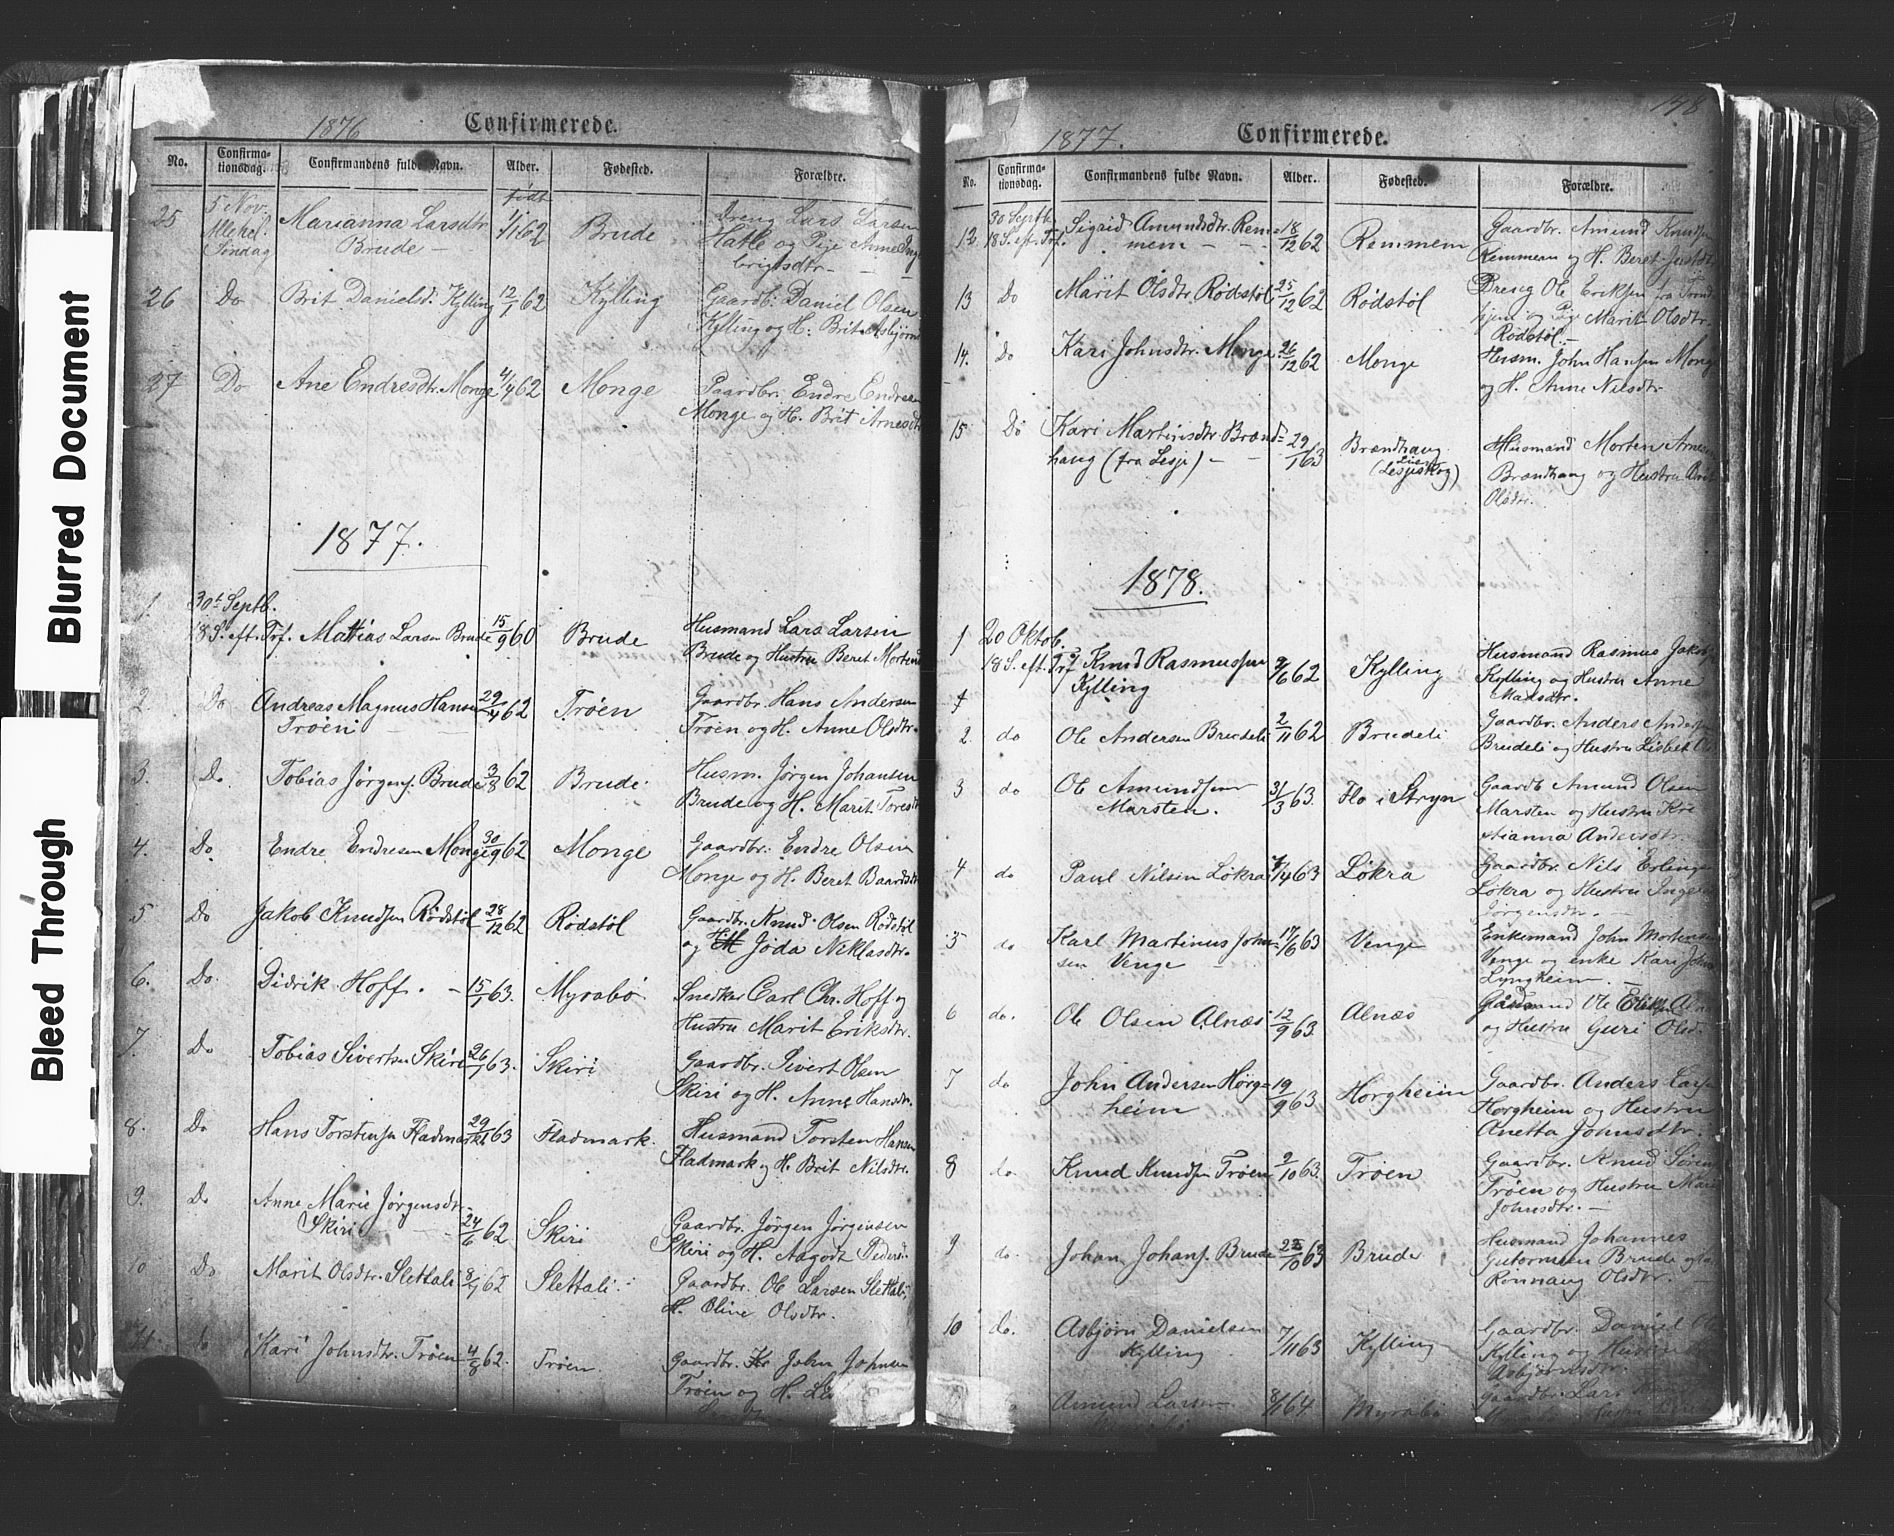 Blurred Document
Bleed Through
1876
Confirmerede.
No.
Confirma-
tionsdag.
Confirmandens fulde Navn.
Alder.
Fødested.
Forældre.
født
25
5 Nov.
Allehel.
Søndag
Marianna Larsdtr.
Brude
1/1 62
Brude
Dreng Lars Larsen
Hatle og Pige Anne Inge
brigtsdtr
26
Do
Brit Danielsd. Kylling
12/1 62
Kylling
Gaardb: Daniel Olsen
Kylling og H: Brit Asbjørns
27
Do
Ane Endresdtr. Monge
4/4 62
Monge
Gaardbr: Endre Endresen
Monge og H. Brit Arnesdtr
1877.
1.
30t Septb.
18 S. eft. Trf.
Mattias Larsen Brude
15/9 60
Brude
Husmand Lars Larsen
Brude og Hustru Beret Mortens
2.
Do
Andreas Magnus Hansen
Trøen
29/4 62
Trøen
Gaardbr. Hans Andersen
Trøen og H. Anne Olsdtr.
3.
Do
Tobias Jørgens. Brude
3/8 62
Brude.
Husm. Jørgen Johansen
Brude og H. Marit Toresdtr
4.
Do
Endre Endresen Monge
30/9 62
Monge
Gaardbr: Endre Olsen
Monge og H. Beret Baardsdtr
5.
Do
Jakob Knudsen Rødstøl
28/12 62
Rødstøl
Gaardbr. Knud Olsen Rødstøl
og H. Joda Niklasdtr.
6.
Do.
Didrik Hoff.
15/1 63.
Myrabø
Snedker Carl Chr. Hoff og
Hustru Marit Eriksdtr.
7.
Do
Tobias Sivertsen Skiri
26/1 63.
Skiri
Gaardbr. Sivert Olsen
Skiri og H. Anne Hansdtr.
8.
Do
Hans Torstensen Fladmark
29/1 63
Fladmark.
Husmand Torsten Hansen
Fladmark og H. Brit Nilsdtr.
9.
Do
Anne Marie Jørgensdtr.
Skiri
24/6 62
Skiri
Gaardbr. Jørgen Jørgensen
Skiri og H. Aagodt Pedersd.
10
Do
Marit Olsdtr. Slettali
8/9 62
Slettali.
Gaardbr. Ole Larsen Slettali,
H. Oline Olsdtr.
11.
Do
Kari Johnsdtr. Trøen
4/8 62.
Trøen.
Gaardbr. John Johnsen
Trøen og H.
178
1877.
Confirmerede.
No.
Confirma-
tionsdag.
Confirmandens fulde Navn.
Alder.
Fødested.
Forældre.
12
30 Septb.
18 S. eft. Trf.
Sigrid Amundsdtr. Rem-
mem
18/12 62
Remmem
Gaardbr. Amund Knudsen
Remmem og H. Beret Justdtr
13
Do
Marit Olsdtr. Rødstøl
25/12 62
Rødstøl
Dreng Ole Eriksen fra Trond
hjem og Pige Marit Olsdtr.
Rødstøl.
14.
Do
Kari Johnsdtr. Monge.
26/12 62
Monge
Husm. John Hansen Monge
og H. Anne Nilsdtr.
15
Do
Kari Martinsdtr. Brænd-
haug (fra Lesje)
29/1 63
Brændhaug
(Lesjeskog)
Husmand Morten Arnesen
Brændhaug og Hustru Brit
Olsdtr.
1878.
1
20 Oktob.
18 S. eft. Trf
Knud Rasmussen
Kylling
9/6 62
Kylling
Husmand Rasmus Jakobs
Kylling og Hustru Anne
Madsdtr.
2.
do
Ole Andersen Brudeli
2/11 62
Brudeli
Gaardbr. Anders Anders
Brudeli og Hustru Lisbet
3
do
Ole Amundsen
Marsten.
31/3 63.
Flo i Stryn
Gaardb Amund Olsen
Marsten og Hustru Kri
stianna Andersdtr.
4
do
Paul Nilsen Løkra
4/4 63
Løkra
Gaardbr. Nils Erlings
Løkra og Hustru Inge
Jørgensdtr.
5
do
Karl Martinus John-
sen Venge
17/6 63
Venge
Enkemand John Mortensen
Venge og enke Kari Johns
Lyngheim.
6
do.
Ole Olsen Alnæs
12/9 63
Alnæs
Ole Alnæs
og Hustru Guri Olsd.
7
do
John Andersen Horg-
heim
19/9 63
Horgheim
Gaardbr. Anders Larsen
Horgheim og Hustru
Anetta Johnsdtr.
8
do.
Knud Knudsen Trøen
2/10 63.
Trøen
Gaardbr. Knud Søren
Trøen og Hustru Mari
Johnsdtr.
9
do.
Johan Johans. Brude
22/10 63
Brude
Husmand Johannes
Gutormsen Brude og
Rønnaug Olsdtr.
10
do.
Asbjørn Danielsen
Kylling
7/11 63
Kylling
Gaardbr. Daniel Ol
Kylling og Hustru
Asbjørnsdtr.
Amund Larsen
8/1 64.
Myrabø
Gaardbr. Lars